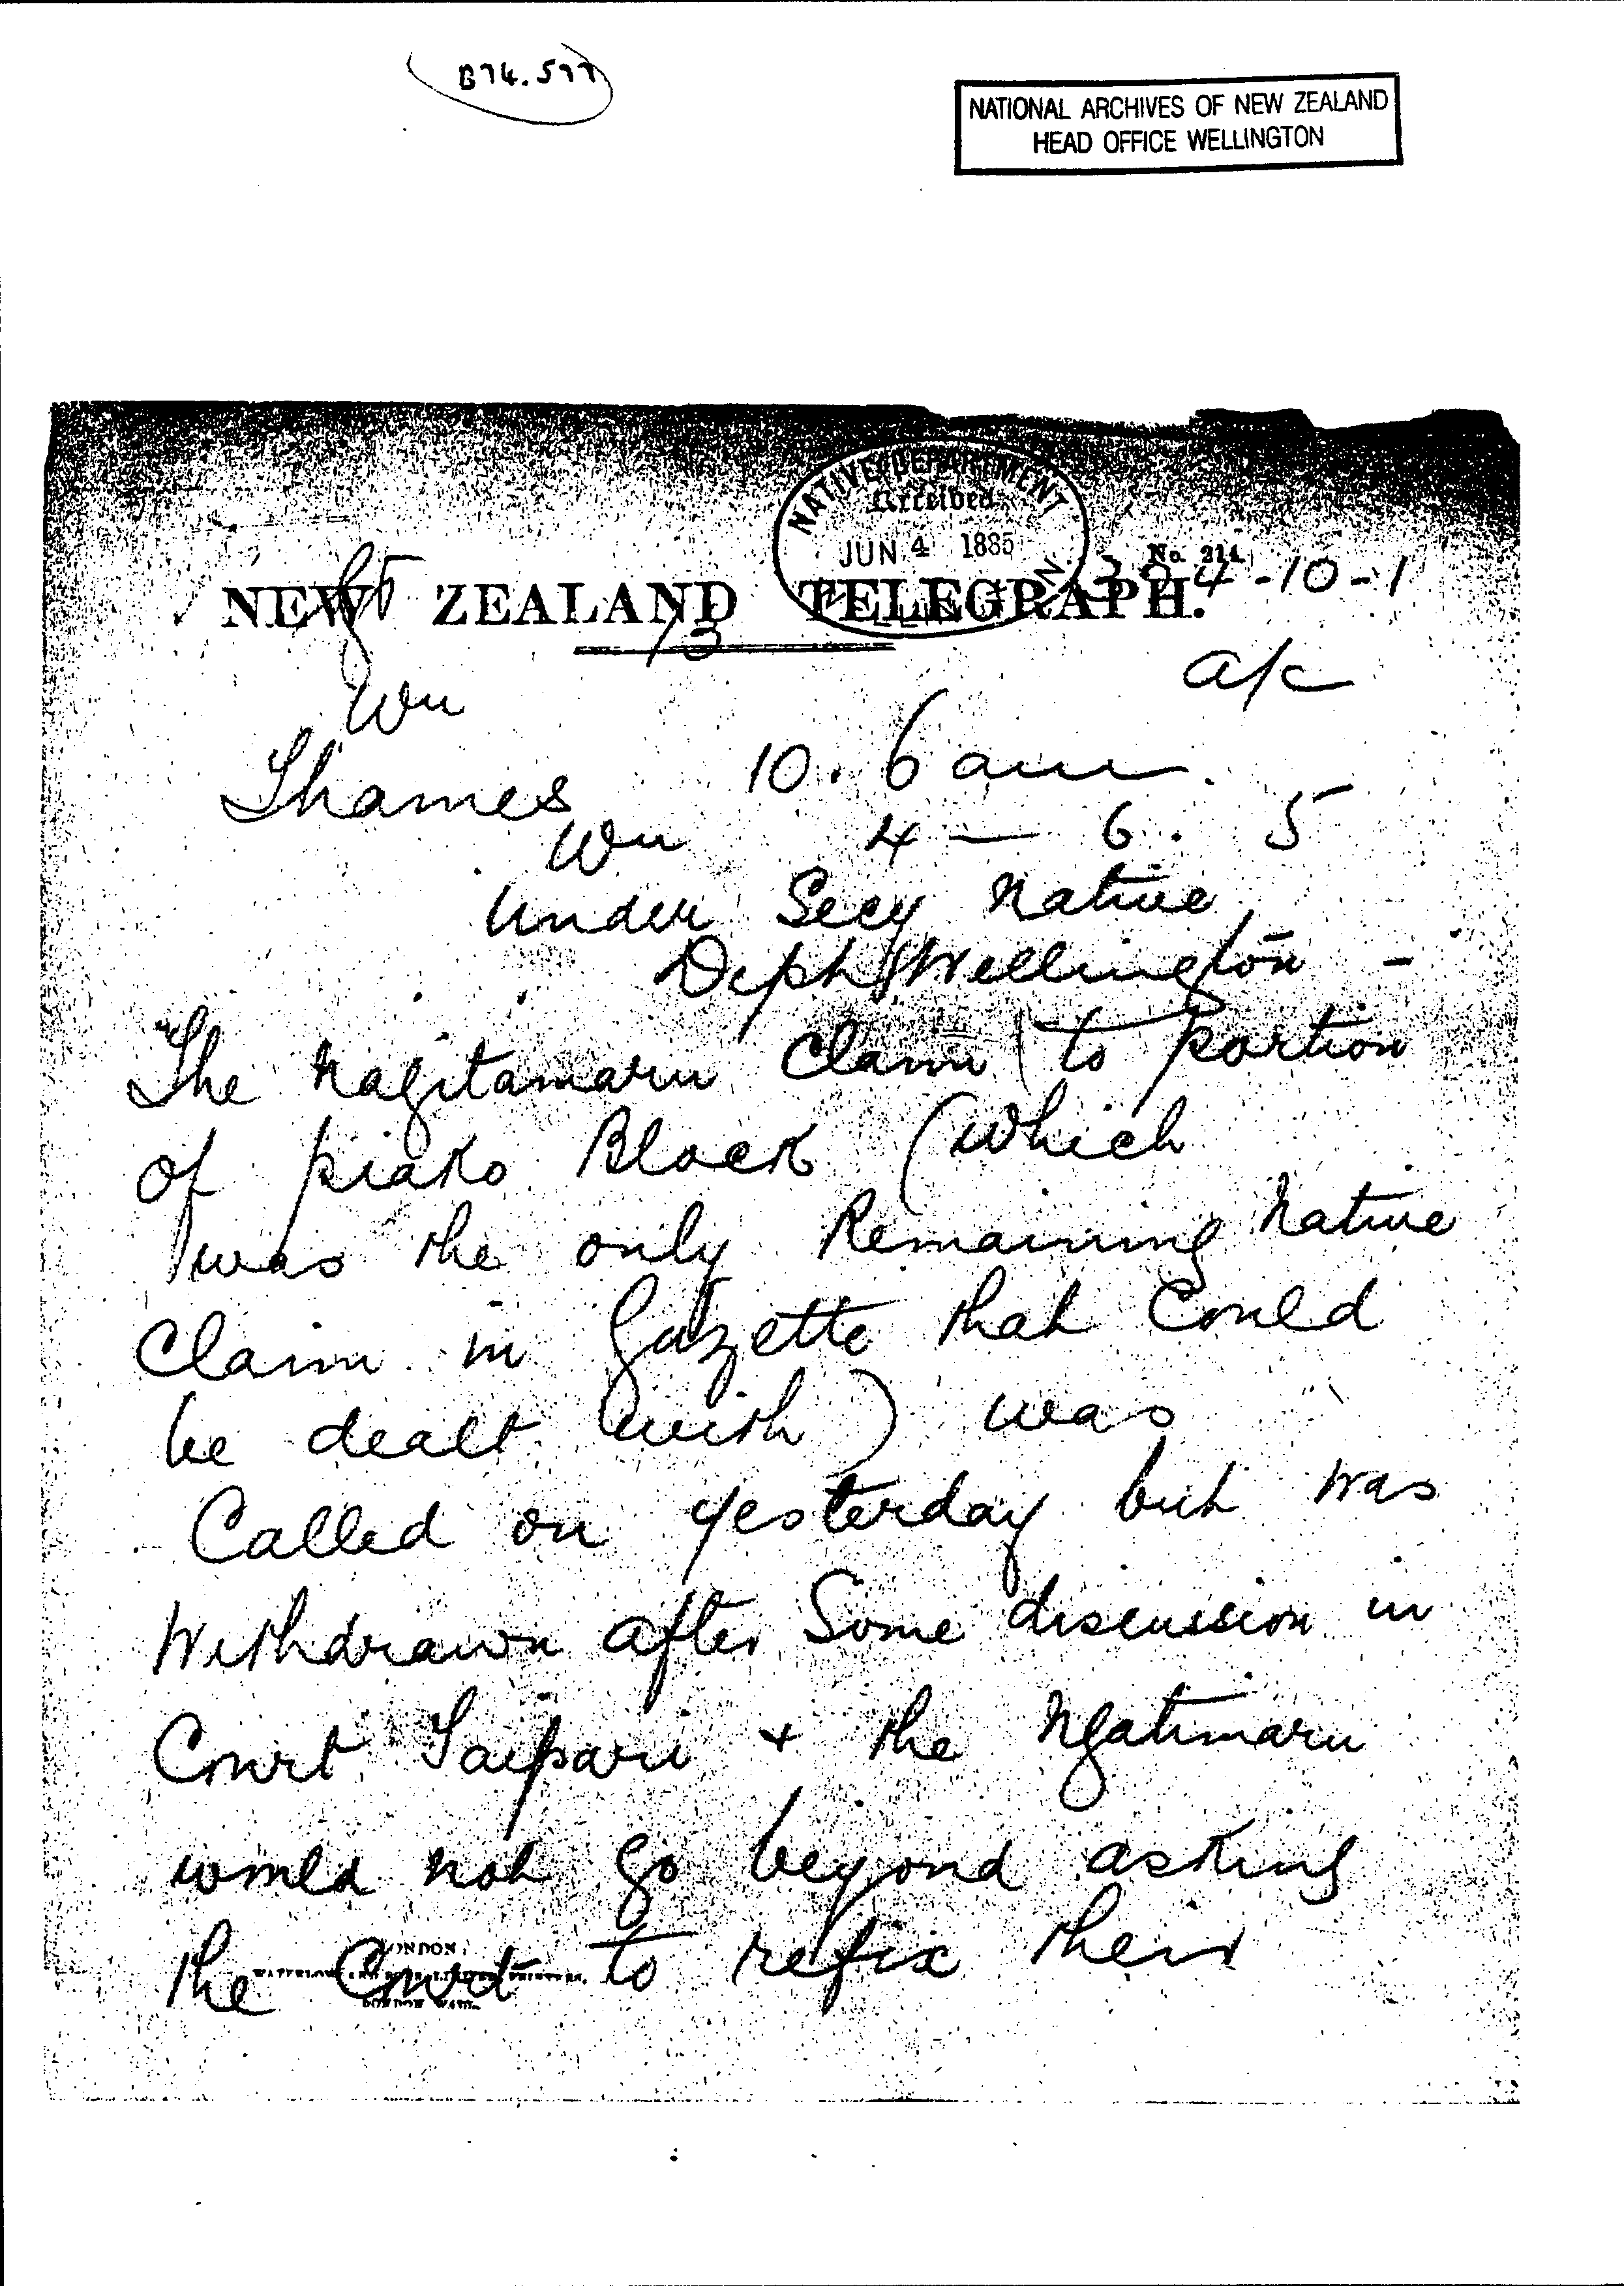 B74.577
NATIONAL ARCHIVES OF NEW ZEALAND
HEAD OFFICE WELLINGTON
NATIVE DEPARTMENT
Received
JUN 4 1885
No. 214
4-10-1
NEW ZEALAND TELEGRAPH.
73
a/c
Wn
Thames 10.6 am
Wn 4 — 6. 5
Under Secy Native
Dept Wellington -
The Nagitamaru Claim to portion
of piako Block (which
was the only Remaining Native
Claim in Gazette that Could
be dealt with) was
Called on yesterday but was
Withdrawn after Some discussion in
Court Taipari + the Ngatimaru
would not go beyond asking
the Court to refix their
LONDON